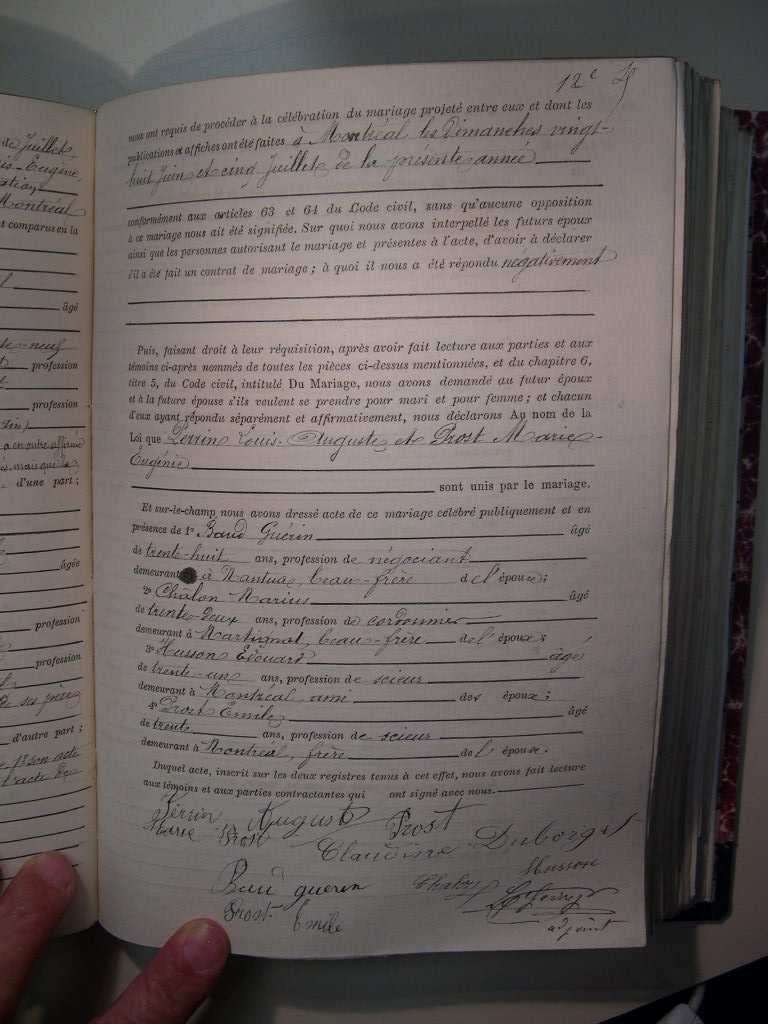 de Juillet
is-Eugénie
Montréal
t comparus en la
âgé
te-neuf
profession
profession
a en outre affirmé
d'une part ;
âgée
profession
profession
de ses père
d'autre part ;
12e
nous ont requis de procéder à la célébration du mariage projeté entre eux et dont les
publications et affiches ont été faites à Montréal les Dimanches vingt-
huit Juin et cinq Juillet de la présente année
conformément aux articles 63 et 64 du Code civil, sans qu'aucune opposition
à ce mariage nous ait été signifiée. Sur quoi nous avons interpellé les futurs époux
ainsi que les personnes autorisant le mariage et présentes à l'acte, d'avoir à déclarer
s'il a été fait un contrat de mariage ; à quoi il nous a été répondu négativement
Puis, faisant droit à leur réquisition, après avoir fait lecture aux parties et aux
témoins ci-après nommés de toutes les pièces ci-dessus mentionnées, et du chapitre 6,
titre 5, du Code civil, intitulé Du Mariage, nous avons demandé au futur époux
et à la future épouse s'ils veulent se prendre pour mari et pour femme ; et chacun
d'eux ayant répondu séparément et affirmativement, nous déclarons Au nom de la
Loi que Perrin Louis-Auguste et Prost Marie-
Eugénie
sont unis par le mariage.
Et sur-le-champ nous avons dressé acte de ce mariage célébré publiquement et en
présence de 1° Baud Guérin âgé
de trente-huit ans, profession de négociant
demeurant à Nantua, beau-frère de l'épouse ;
2° Châlon Marius âgé
de trente-deux ans, profession de cordonnier
demeurant à Martignat, beau-frère de l'épouse ;
3° Husson Edouard âgé
de trente-un ans, profession de scieur
demeurant à Montréal ami des époux ;
4° Prost Emile âgé
de trente ans, profession de scieur
demeurant à Montréal, frère de l'épouse.
Duquel acte, inscrit sur les deux registres tenus à cet effet, nous avons fait lecture
aux témoins et aux parties contractantes qui ont signé avec nous.
Perrin Auguste Prost
Marie Prost Claudine Duborget
Husson
Baud guerin Chalon
Prost Emile
adjoint